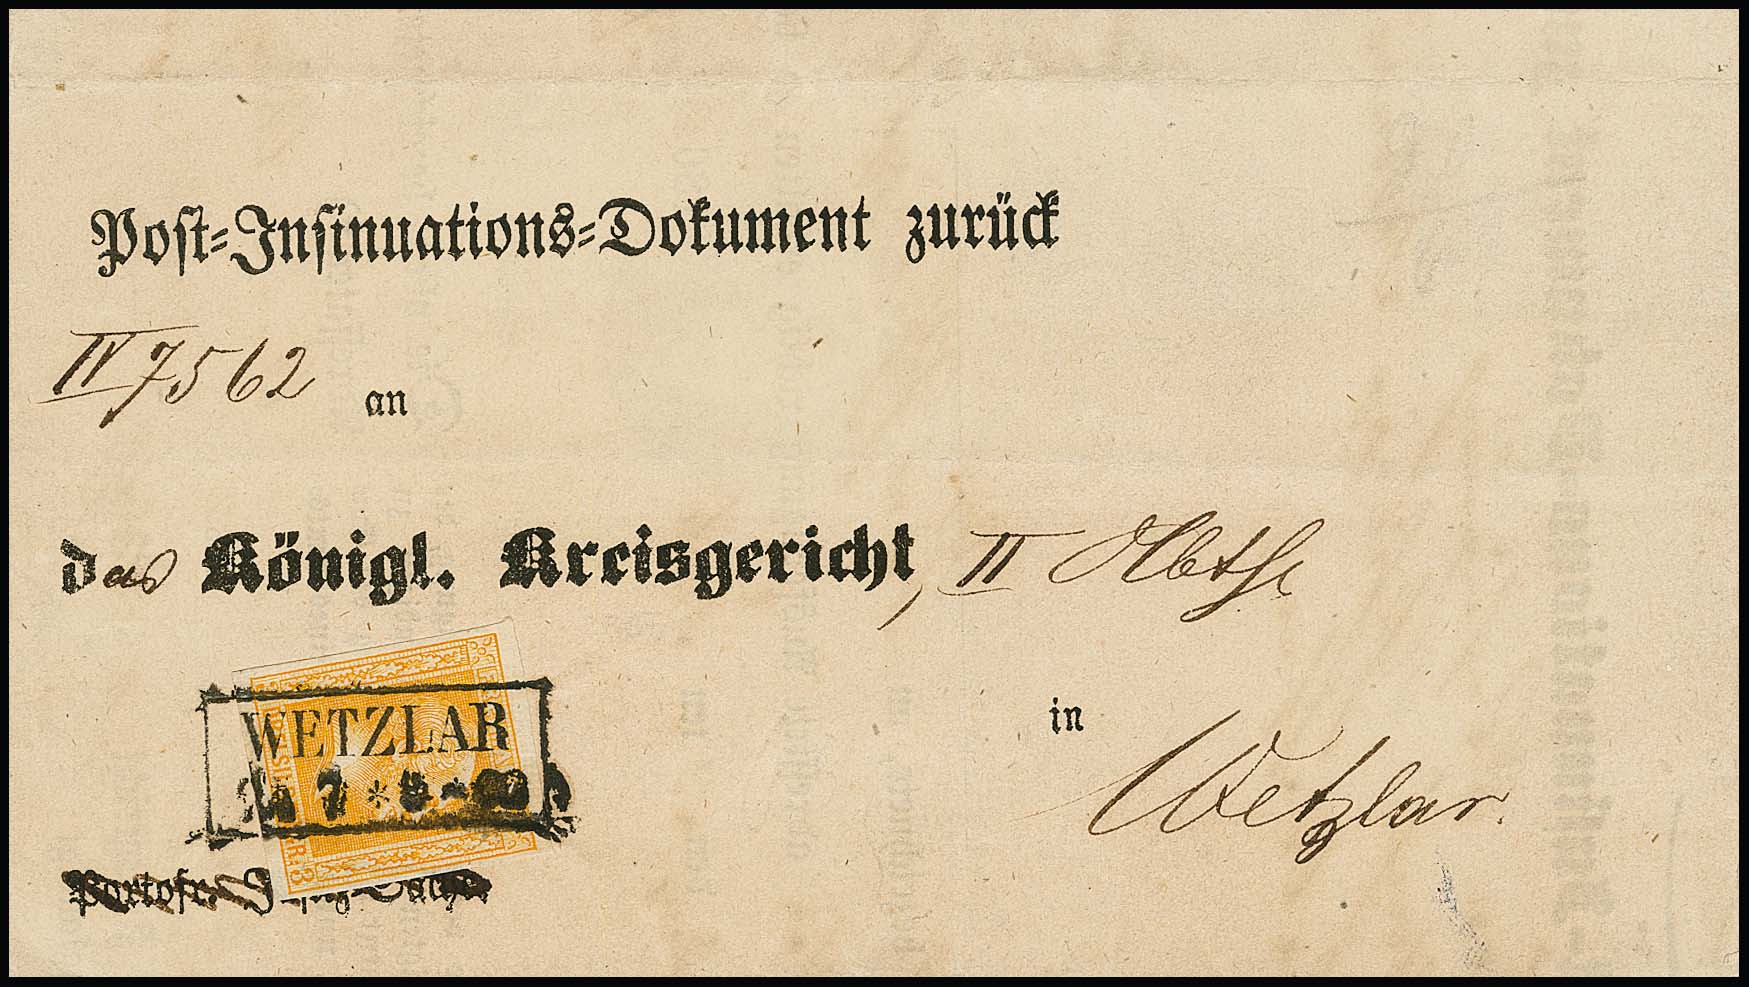 Post-Insinuations-Dokument zurück
IV 7562 an
das Königl. Kreisgericht, II Abth
in
Wetzlar.
WETZLAR
7 *
Portofr. Justiz-Sache.